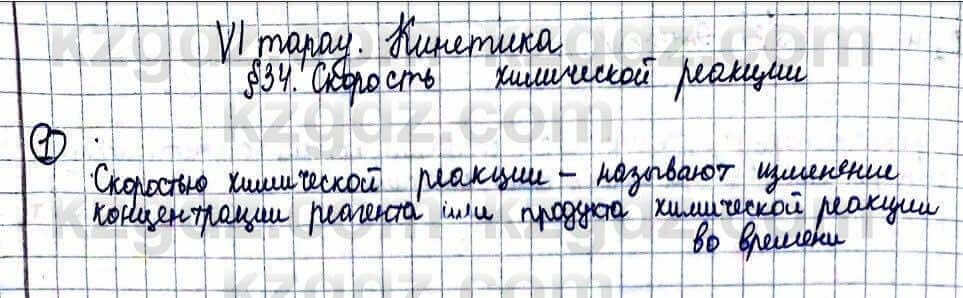 VI тарау. Кинетика
§34. Скорость химической реакции
1
Скоростью химической реакции – называют изменение
концентрации реагента или продукта химической реакции
во времени
kzgdz.com